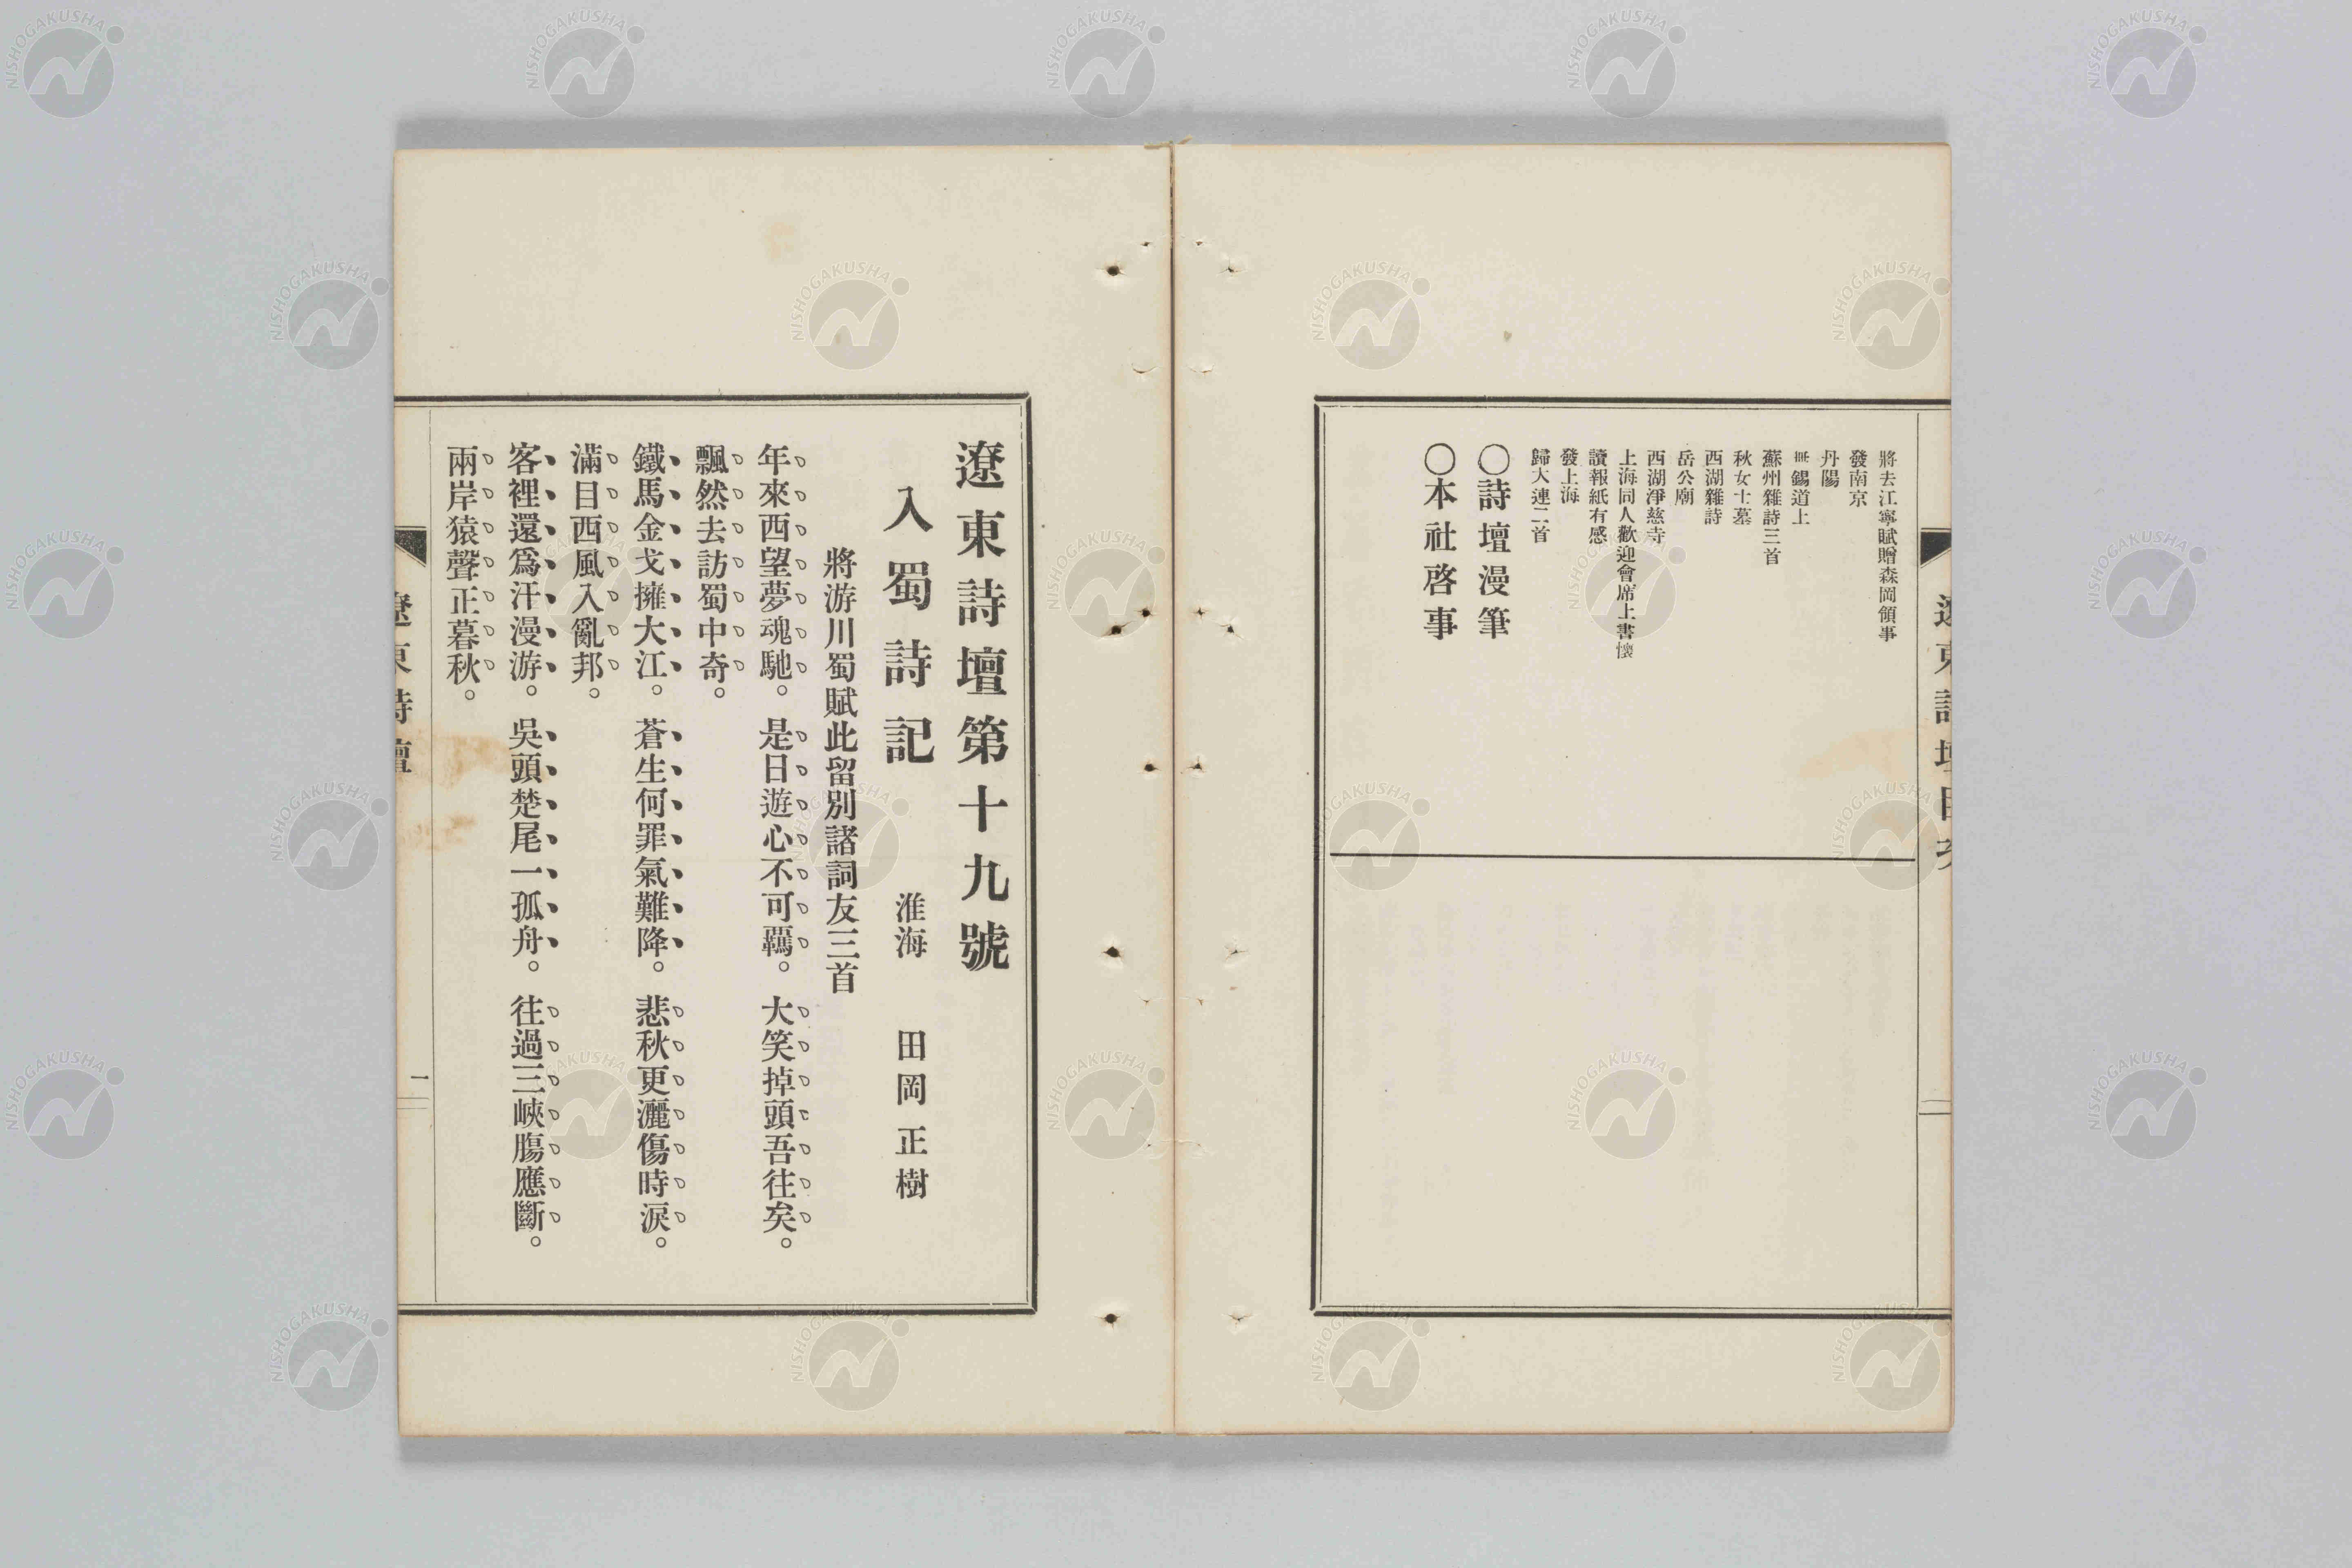 將去江寧賦贈森岡領事
發南京
丹陽
無錫道上
蘇州雜詩三首
秋女士墓
西湖雜詩
岳公廟
西湖淨慈寺
上海同人歡迎會席上書懷
讀報紙有感
發上海
歸大連二首
〇詩壇漫筆
〇本社啓事
遼東詩壇第十九號
入蜀詩記 淮海 田岡正樹
將游川蜀賦此留別諸詞友三首
年來西望夢魂馳。是日遊心不可羈。大笑掉頭吾往矣。
飄然去訪蜀中奇。
鐵馬金戈擁大江。蒼生何罪氣難降。悲秋更灑傷時淚。
滿目西風入亂邦。
客裡還爲汗漫游。吳頭楚尾一孤舟。往過三峽膓應斷。
兩岸猿聲正暮秋。
遼東詩壇
一
NISHOGAKUSHA